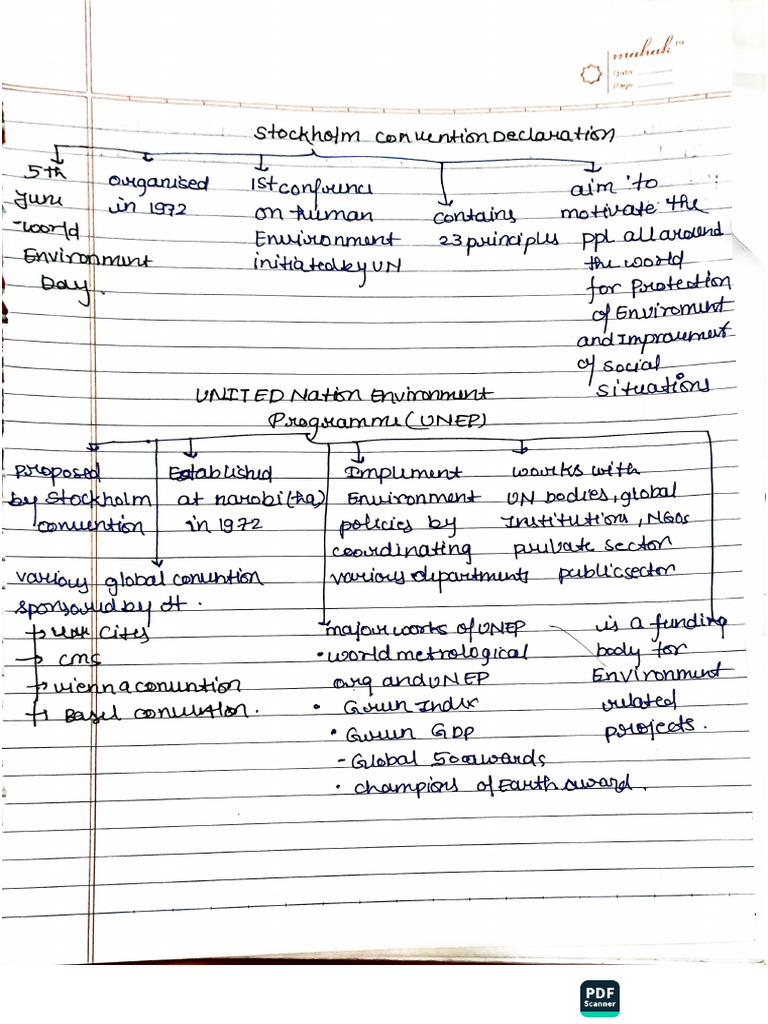 mahak™
Date
Page
Stockholm Convention Declaration
5th
June
-world
Environment
Day.
organised
in 1972
1st confrence
on human
Environment
initiated by UN
contains
23 principles
aim to
motivate the
ppl all around
the world
for Protection
of Enviroment
and Improvement
of social
situations
UNITED Nation Environment
Programme (UNEP)
Proposed
by Stockholm
convention
Established
at narobi (HQ)
in 1972
Implement
Environment
policies by
coordinating
various departments
works with
UN bodies, global
Institutions, NGOs
private sector
public sector
various global convntion
sponsored by it.
→ Cites
→ cms
→ vienna convntion
→ Basel convention.
major works of UNEP
• world metrological
org and UNEP
• Green Index
• Green GDP
- Global 500 awards
• champions of Earth award.
is a funding
body for
Environment
related
projects.
PDF
Scanner